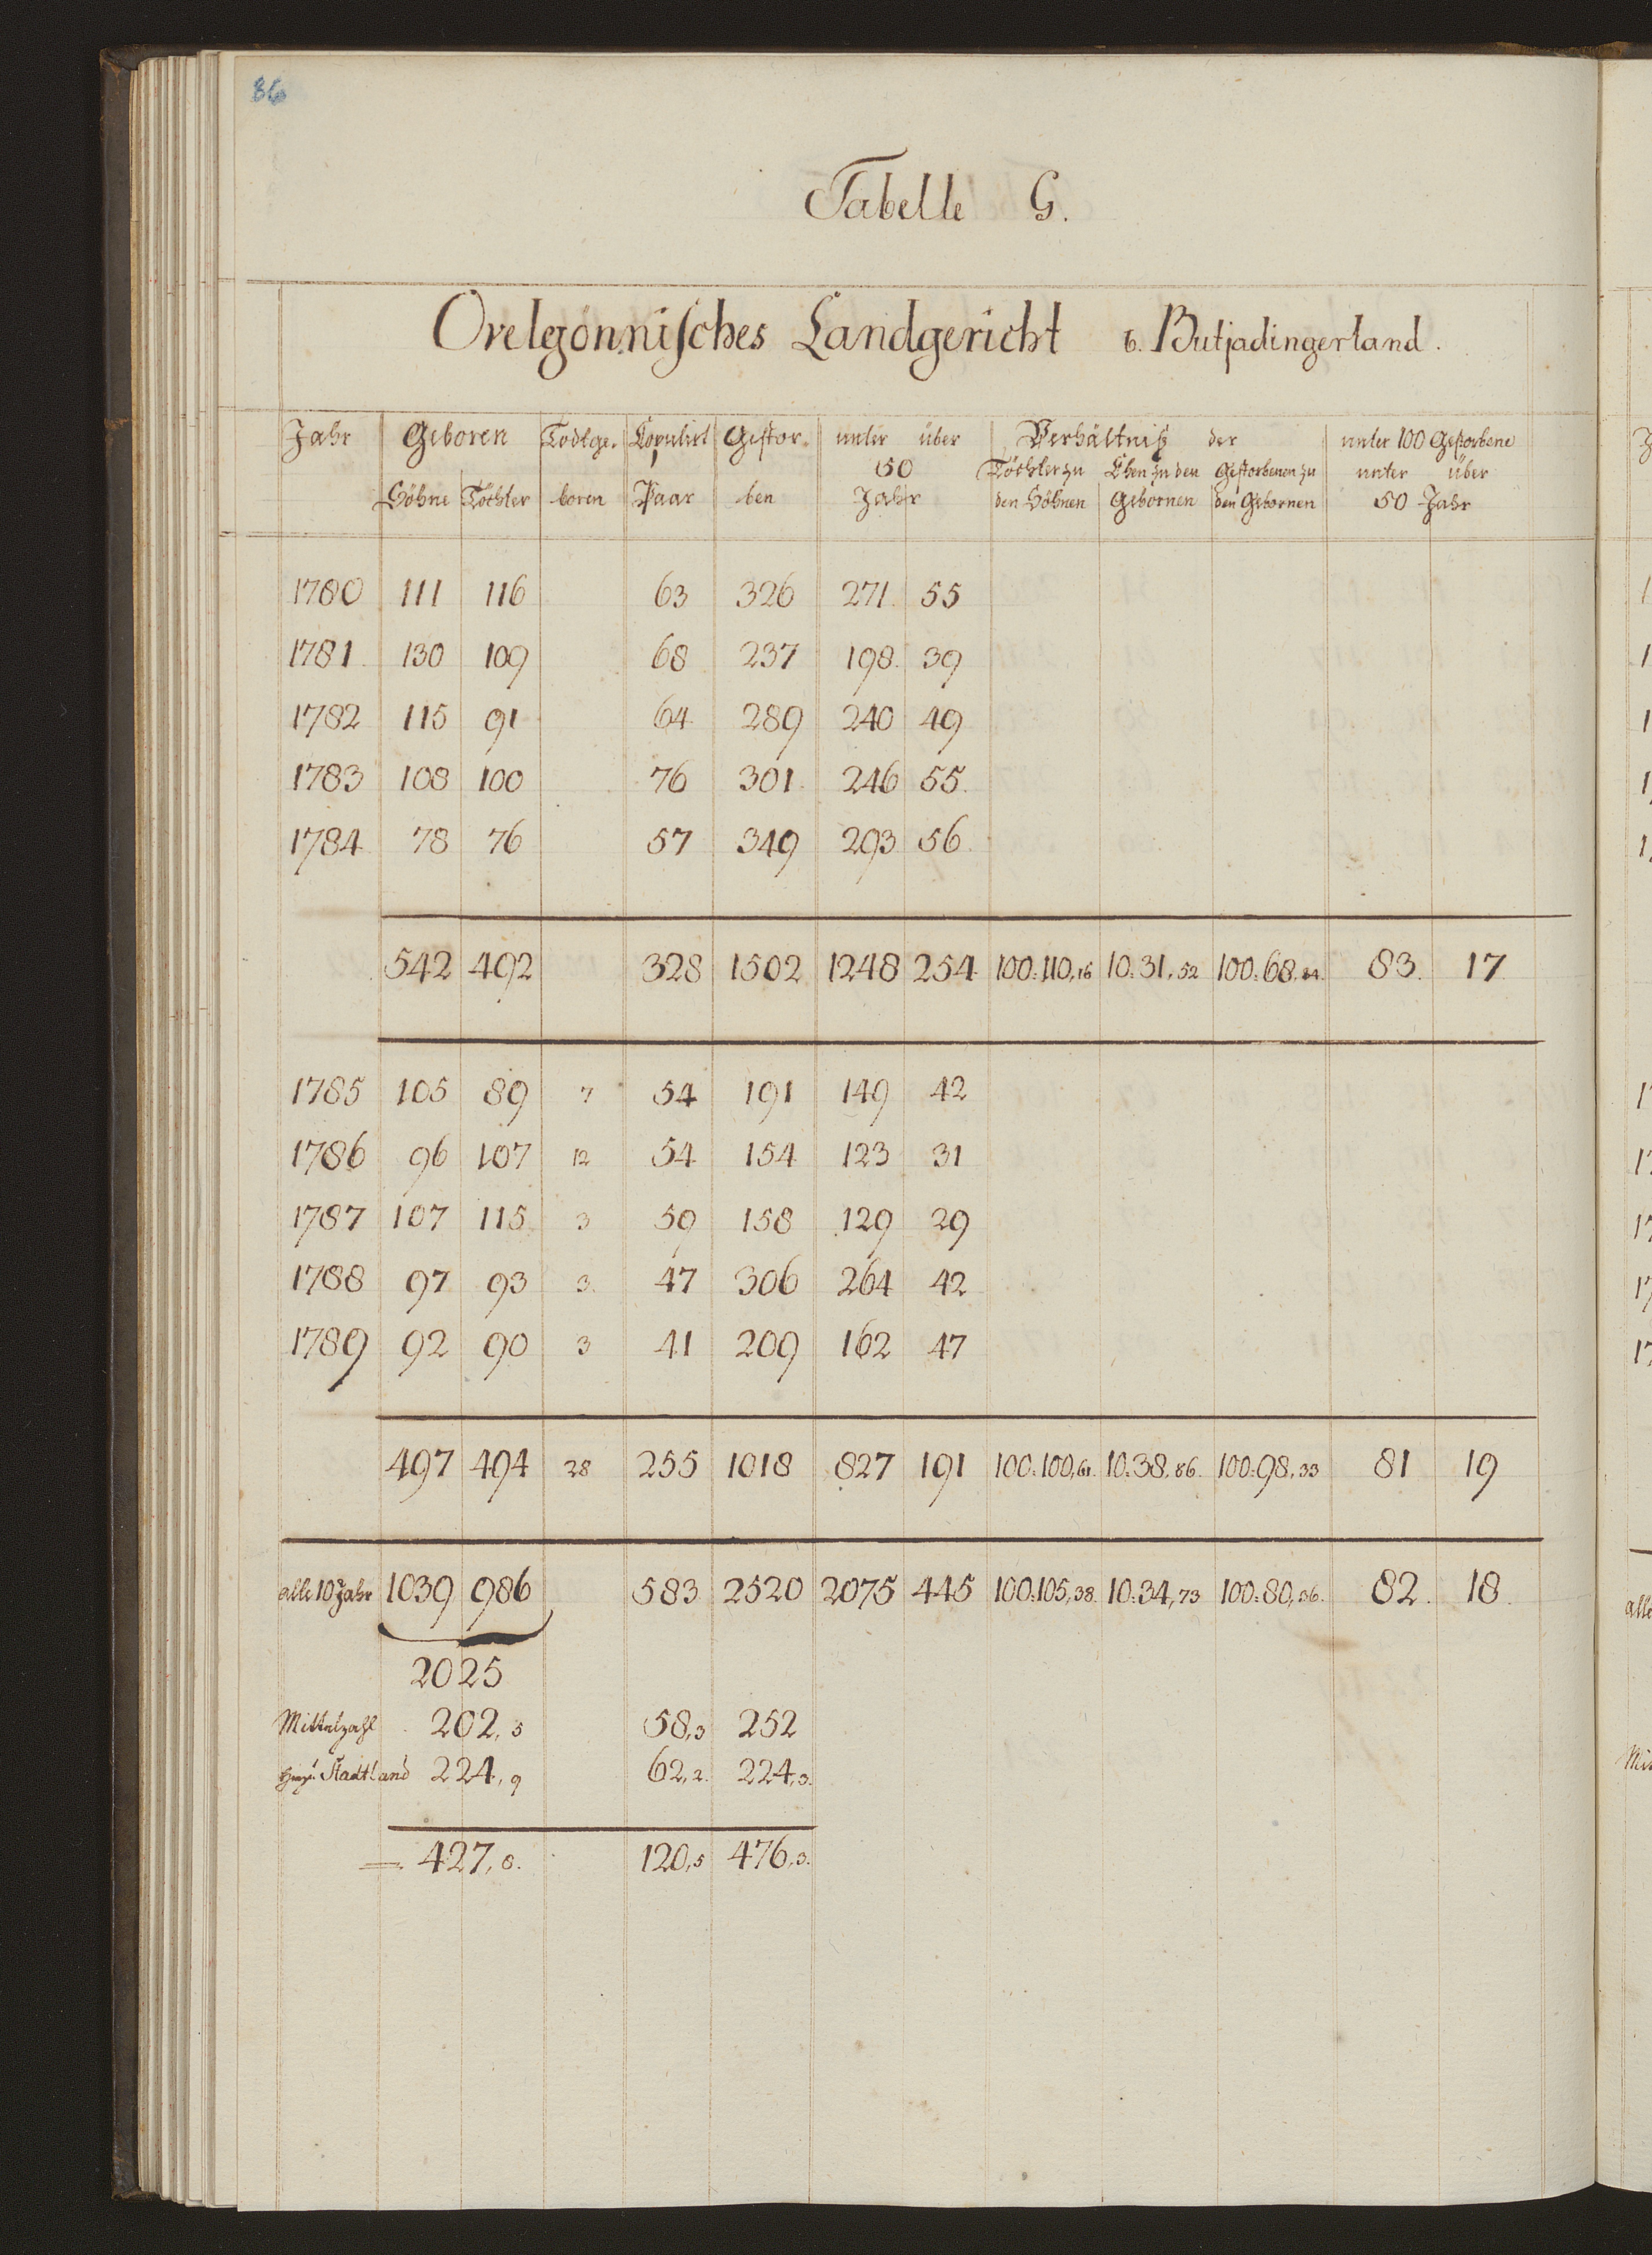 86
Tabelle G.
Ovelgönnisches Landgericht b. Butjadingerland.
Jahr Geboren Todtge. Kopulirt Gestor. unter über Verhältniß der unter 100 Gestorbene
50 Töchter zu Ehen zu den Gestorbenen zu unter über
Söhne Töchter boren Paar ben Jahr den Söhnen Gebornen den Gebornen 50 Jahr
1780 111 116 63 326 271 55
1781 130 109 68 237 198 39
1782 115 91 64 289 240 49
1783 108 100 76 301 246 55
1784 78 76 57 349 293 56
542 492 328 1502 1248 254 100:110,16 10:31,52 100:68,84 83. 17
1785 105 89 7 54 191 149 42
1786 96 107 12 54 154 123 31
1787 107 115 3 59 158 129 29
1788 97 93 3 47 306 264 42
1789 92 90 3 41 209 162 47
497 494 28 255 1018 827 191 100:100,61. 10:38,86. 100:98,33 81 19
alle 10 Jahr 1039 986 583 2520 2075 445 100:105,38. 10:34,73 100:80,36. 82. 18.
2025
Mittelzahl 202,5 58,3 252
Stadtland 224,9 62,2. 224,3.
= 427,8. 120,5 476,3.